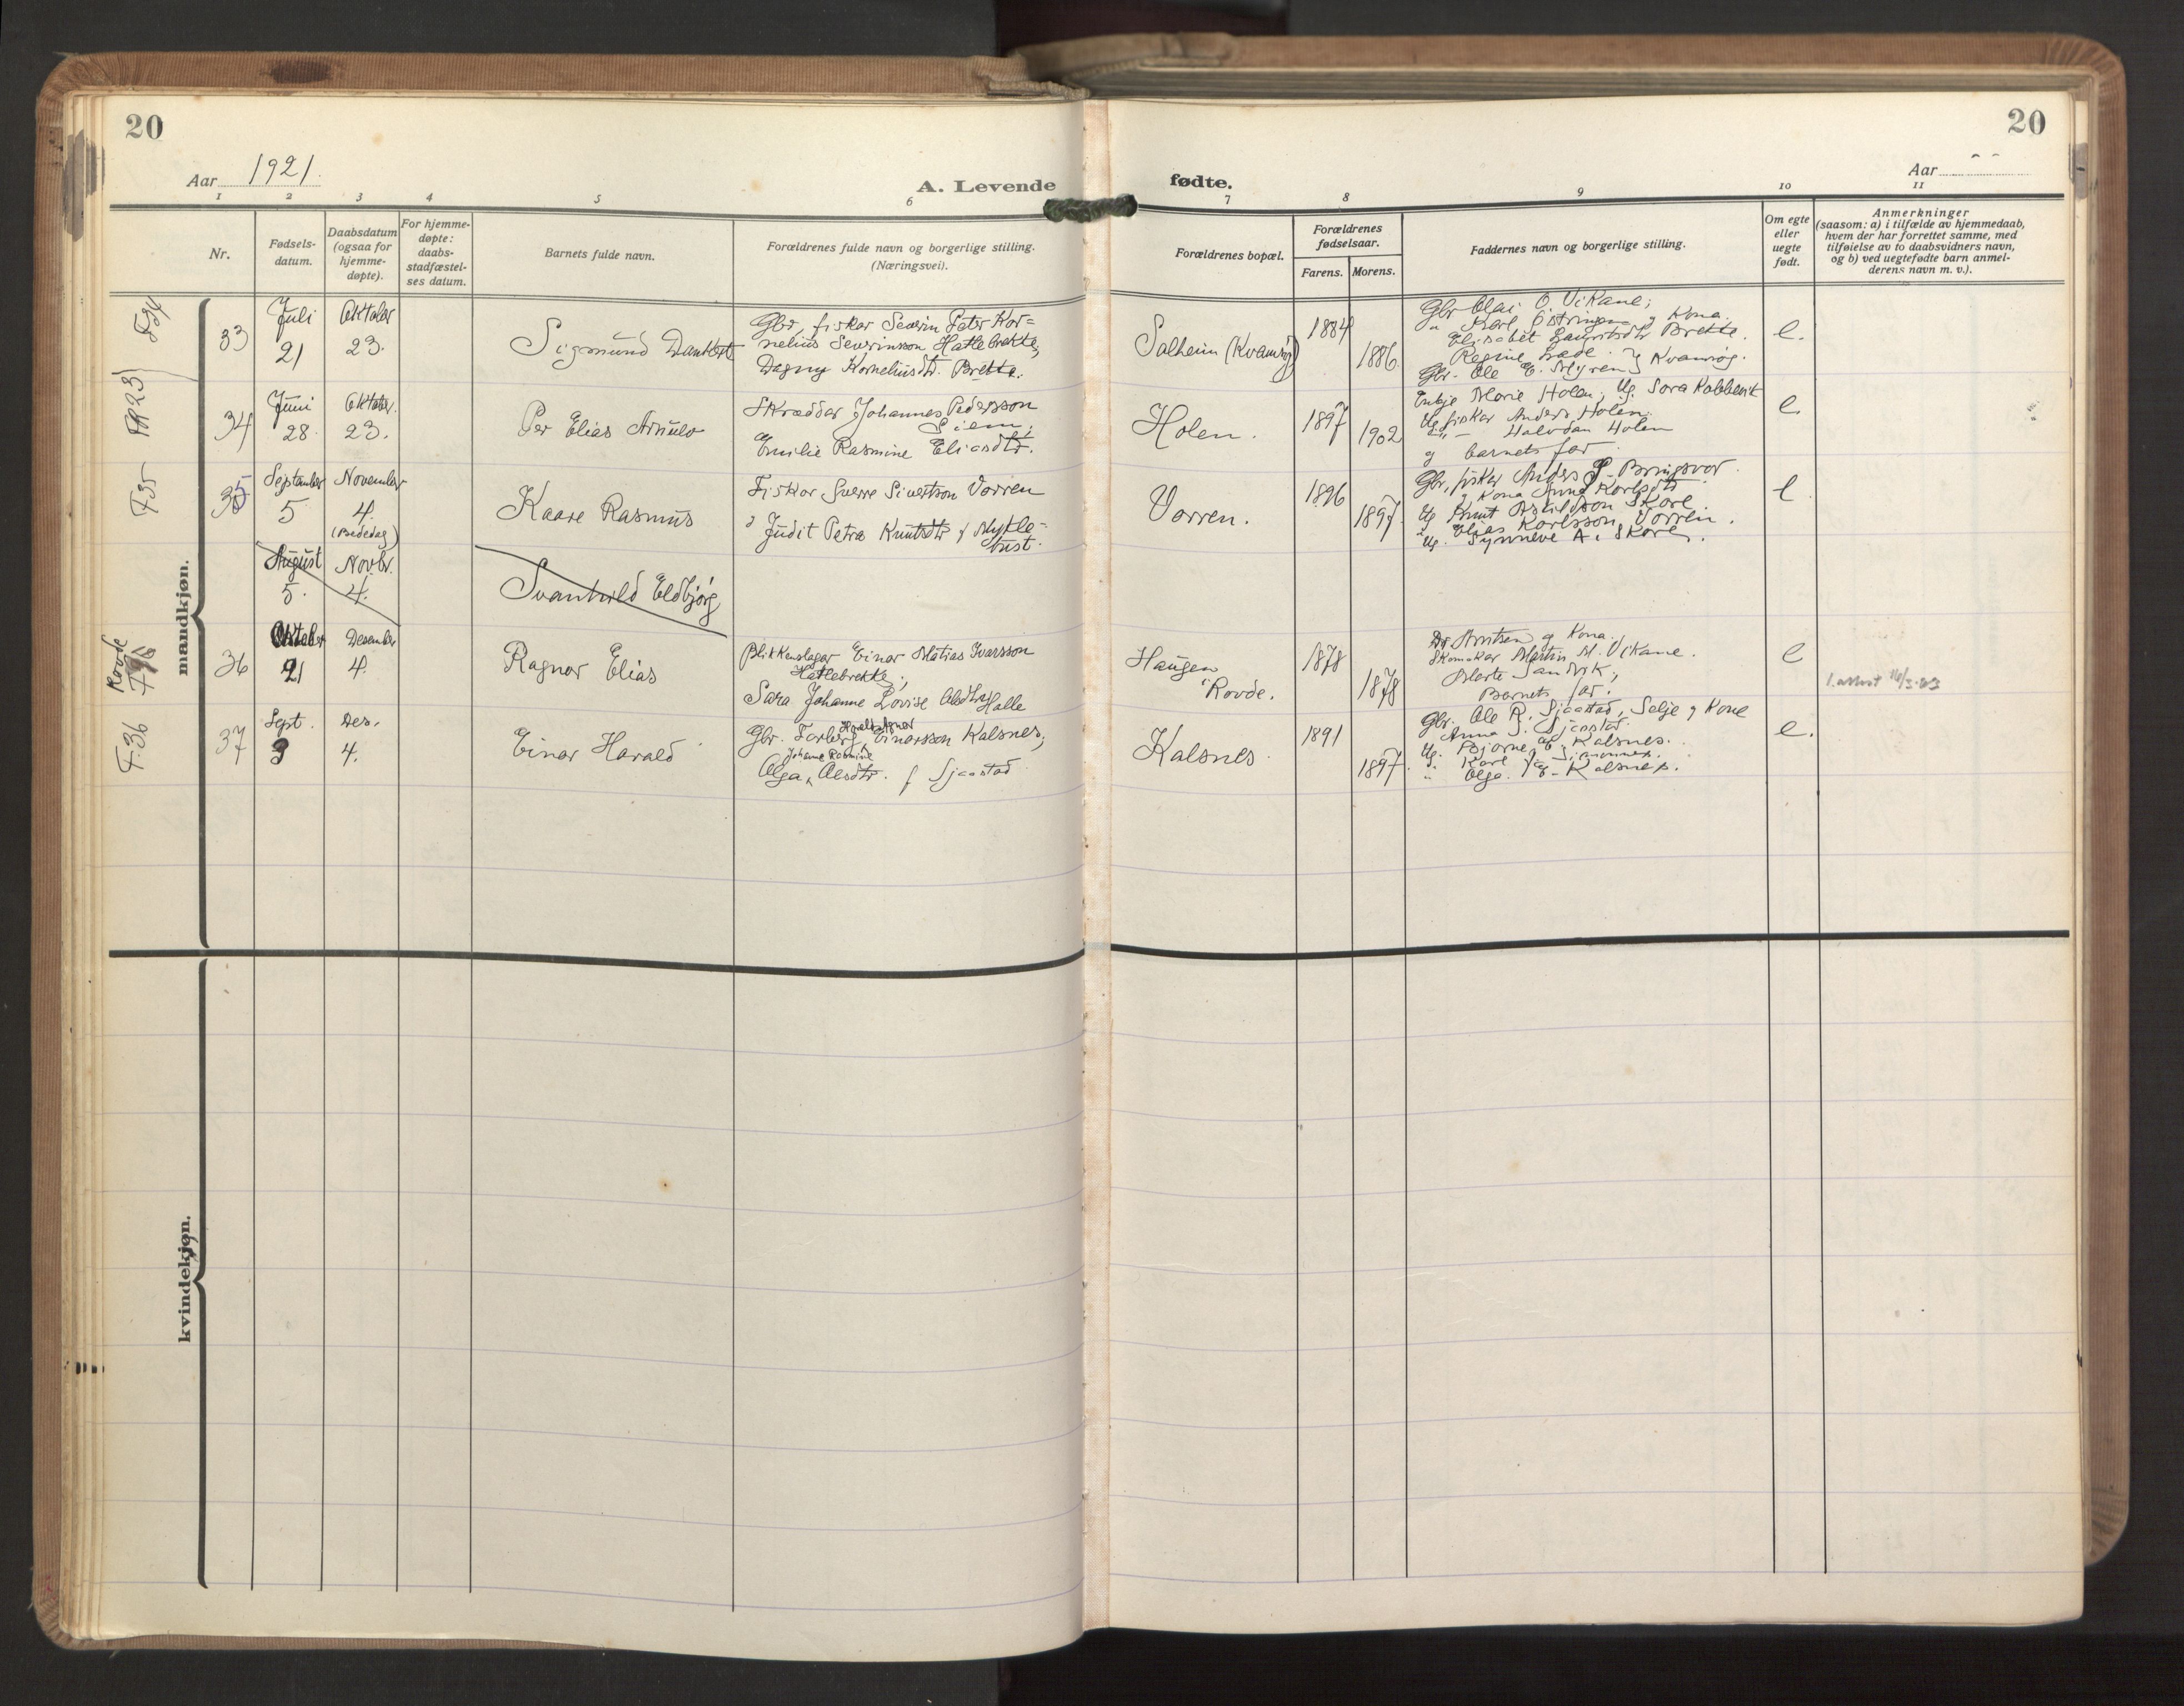 20
20
Aar 1921.
A. Levende
fødte.
Aar
1 2 3 4 5 6 7 8 9 10 11
Nr.
Fødsels-
datum.
Daabsdatum
(ogsaa for
hjemme-
døpte).
For hjemme-
døpte:
daabs-
stadfæstel-
ses datum.
Barnets fulde navn.
Forældrenes fulde navn og borgerlige stilling.
(Næringsvei).
Forældrenes bopæl.
Forældrenes
fødselsaar.
Farens. Morens.
Faddernes navn og borgerlige stilling.
Om egte
eller
uegte
født.
Anmerkninger
(saasom: a) i tilfælde av hjemmedaab,
hvem der har forrettet samme, med
tilføielse av to daabsvidners navn,
og b) ved uegtefødte barn anmel-
derens navn m. v.).
mandkjøn.
F34
33
Juli
21
Oktober
23.
Sigmund Dankert
Gbr, fisker Severin Peter Kor=
nelius Severinsson Hatlebrekke;
Dagny Korneliusdtr. Brekke.
Solheim (Kvamsøy)
1884
1886
Gbr Olai O. Vikane;
" Karl Østringen y Kona.
Elisabet Lauritsdtr Brekke.
Regine
Gbr. Ole E. Myren } Kvamsøy.
e.
34
Juni
28.
Oktober.
23.
Per Elias Arnulv
Skræddar Johannes Pedersson
Emilie Rasmine Eliasdtr.
Holen.
1897
1902
Enkje Marie Holen, Ug. Sara Kobbevik
Ug fisker Anders Holen.
Halvdan Holen
og barnets far
e.
F35
35
September
5
November
4.
(Bededag)
Kaare Rasmus
Fiskar Sverre Sivertson Vorren
Judit Petra Knutsdtr f Mykle=
bust.
Vorren.
1896
1897.
Gbr, fisker Anders P. Bringsvor.
y Kona Anna Karlsdtr
Ug Knut Askildson Skare
" Elias Karlsson Vorren.
Ug. Synneve A. Skare.
e.
August
5.
Novbr.
4.
Svanhild Eldbjørg
Rovde
36
Oktober
21
Desember
4.
Ragnar Elias
Blikkenslagar Einar Matias Ivarsson
Hatlebrekke;
Sara Johanne Lovise Olsdtr Halle
Haugen
i Rovde.
1878
1878
Dr. Arntsen og Kona.
Skomakar Martin M. Vikane.
Marte Sandvik,
Barnets far.
e
1. attest 16/3-23
F.36
37
Sept.
3
Des.
4.
Einar Harald
Gbr. Torberg Harald Agnar Einarsson Kalsnes;
Olga Johanne Rasmine Olesdtr. f Sjaastad
Kalsnes
1891
1897.
Gbr. Ole R. Sjaastad, Selje y Kone
Anna J. Sjaastad.
Ug. Bjarne E. Kalsnes.
" Karl
" Olga E. Kalsnes.
e.
kvindekjøn.